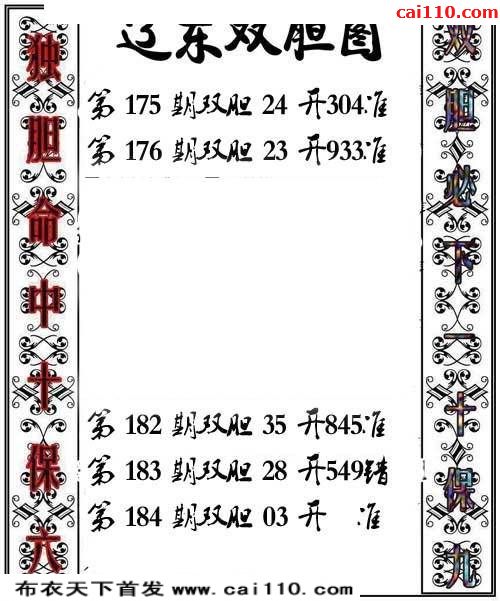 cai110.com
辽东双胆图
第 175 期双胆 24 开304准
第 176 期双胆 23 开933准
第 182 期双胆 35 开845准
第 183 期双胆 28 开549错
第 184 期双胆 03 开 准
独胆命中十保六
双胆必下一十保九
布衣天下首发 www.cai110.com